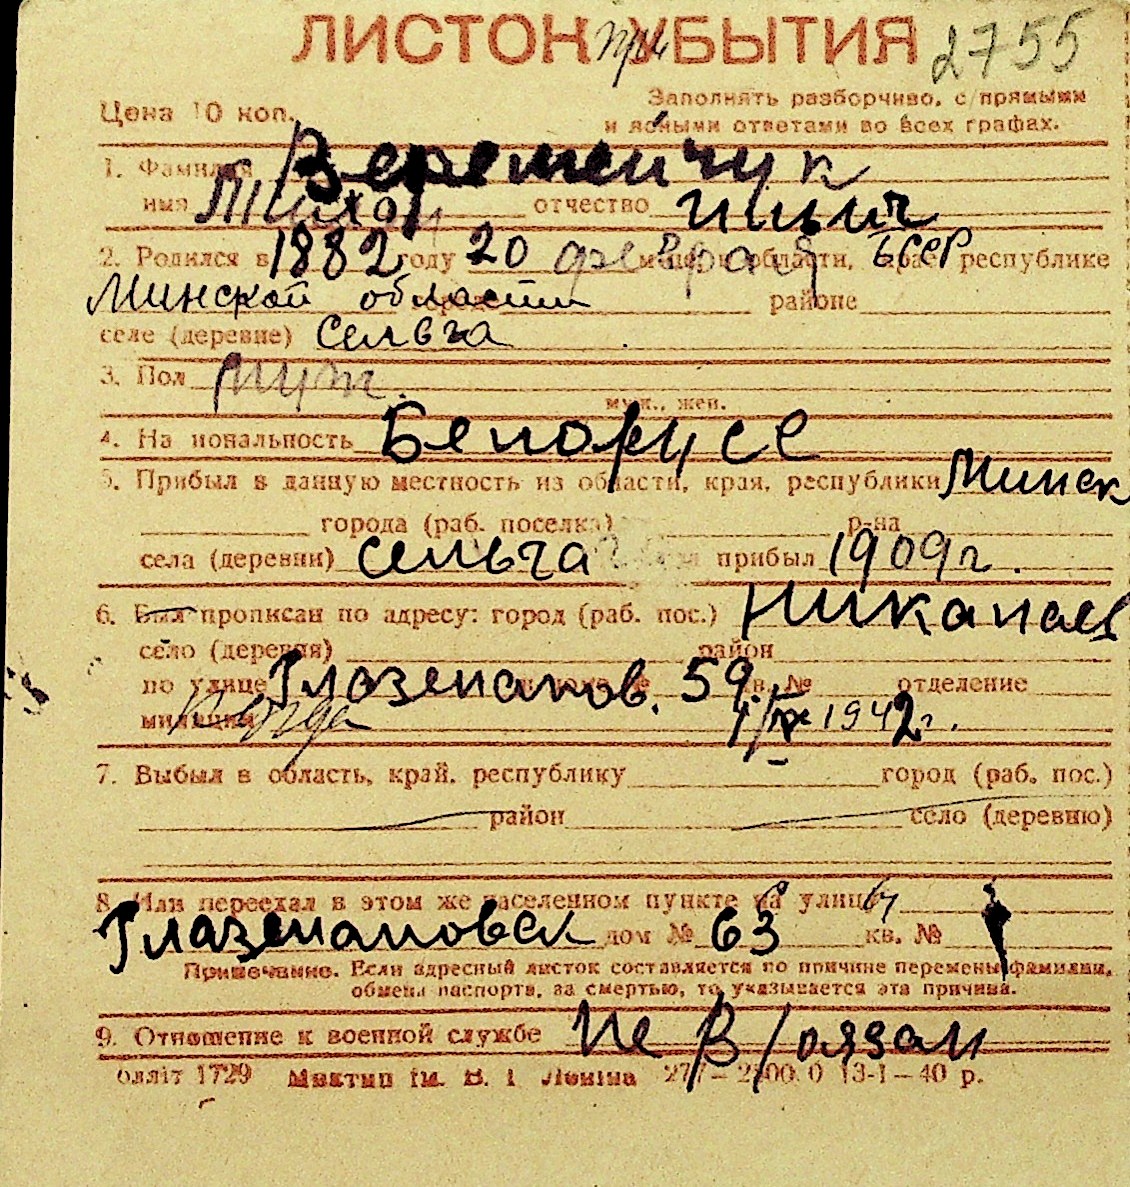 ЛИСТОК при УБЫТИЯ 2755
Цена 10 коп. Заполнять разборчиво, с прямыми
и ясными ответами во всех графах.
1. Фамилия Веремейчук
имя Тихон отчество Ильич
2. Родился в 1882 году 20 февраля м-це, в области, крае, республике БССР
Минской области городе районе
селе (деревне) Сельга
3. Пол муж.
муж., жен.
4. Национальность Белорусс
5. Прибыл в данную местность из области, края, республики Минск
города (раб. поселка) р-на
села (деревни) сельга прибыл 1909 г.
6. Был прописан по адресу: город (раб. пос.) Николаев
село (деревня) район
по улице Глазенапов. 59 кв. № отделение
милиции Когда 1942 г.
7. Выбыл в область, край, республику город (раб. пос.)
район село (деревню)
8. Или переехал в этом же населенном пункте на улицу
Глазенаповск дом № 63 кв. №
Примечание. Если адресный листок составляется по причине перемены фамилии,
обмена паспорта, за смертью, то указывается эта причина.
9. Отношение к военной службе не в/обязан
Облліт 1729 Миктип ім. В. І. Леніна 13-I—40 р.